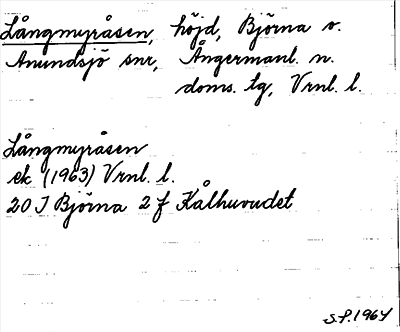 Långmyråsen, höjd, Björna o.
Anundsjö snr, Ångermanl. n.
doms. tg, Vrnl. l.
Långmyråsen
ek (1963) Vrnl. l.
20 J Björna 2 f Kålhuvudet
S.P. 1964